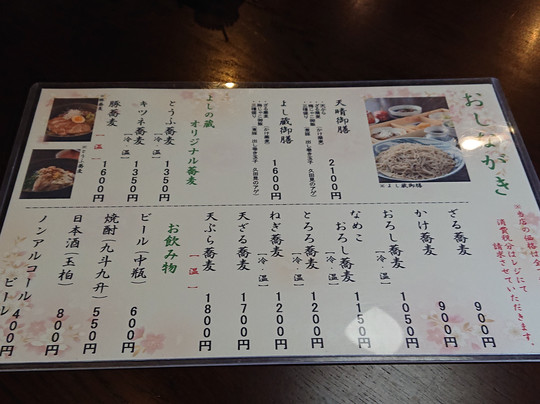 おしながき
※当店の価格は全
消費税分はレジにて
請求させていただきます。
※よし蔵御膳
天晴御膳 2100円
よし蔵御膳 1600円
よしの蔵 オリジナル蕎麦
とうふ蕎麦 [冷・温] 1350円
キツネ蕎麦 [冷・温] 1350円
豚蕎麦 [温] 1600円
ざる蕎麦 900円
かけ蕎麦 900円
おろし蕎麦 [冷・温] 1050円
なめこおろし蕎麦 [冷・温] 1150円
とろろ蕎麦 [冷・温] 1200円
ねぎ蕎麦 [冷・温] 1200円
天ざる蕎麦 1700円
天ぷら蕎麦 [温] 1800円
お飲み物
ビール(中瓶) 600円
焼酎(九斗九升) 550円
日本酒(玉柏) 800円
ノンアルコールビール 400円